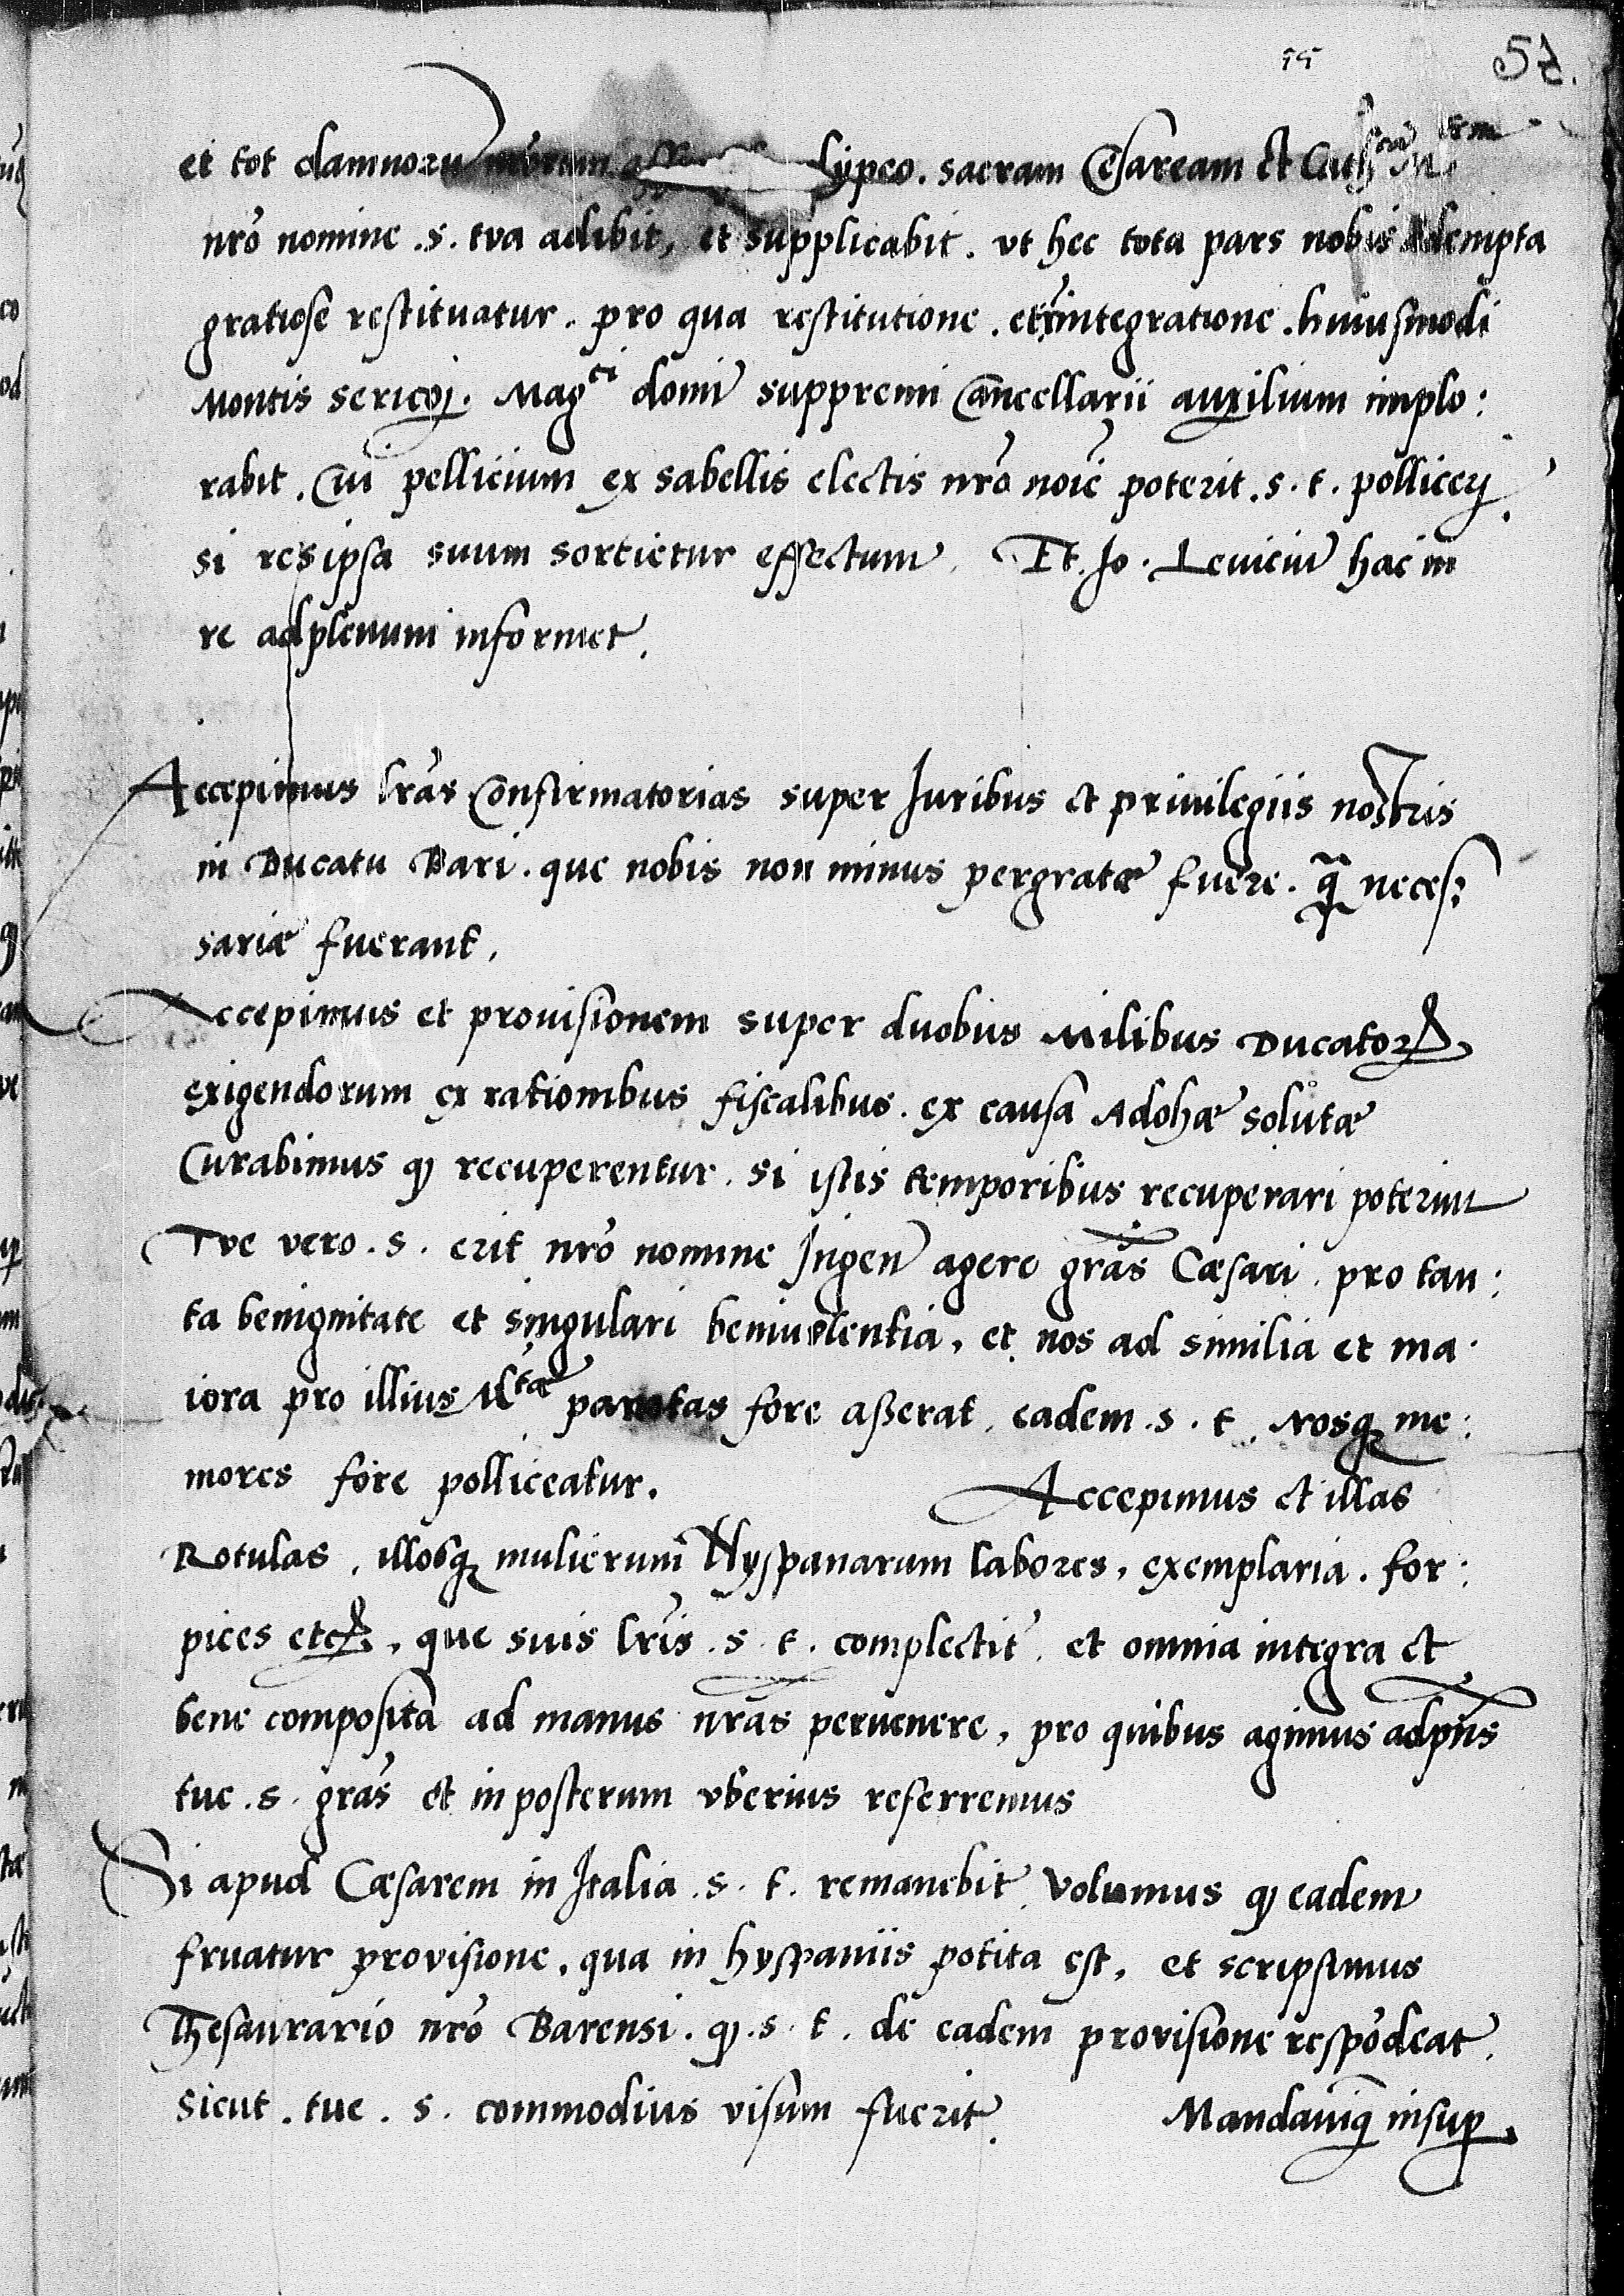 55 51.
et tot damnorum nrorum lypco. sacram Cesaream et Cath
nrō nomine .s. tua adibit, et supplicabit. vt hec tota pars nobis Adempta
gratiose restituatur. pro qua restitutione .et reintegratione .huiusmodi
Montis sericoj. Magci domī suppremi Cancellarii auxilium implo:
rabit. Cui pellicium ex sabellis electis nrō noīe poterit .s. t. pollicerj
si res ipsa suum sortietur effectum. Et Jo. Leuiciū hac in
re adplenum informet.
Accepimus lrās Confirmatorias super Juribus et priuilegiis nostris
in Ducatu Bari. que nobis non minus pergratæ fuere. q̄ neces:
sariæ fuerant.
Accepimus et prouisionem super duobus Milibus Ducatorꝝ
exigendorum ex rationibus fiscalibus. ex causa Adohæ solutæ
Curabimus qꝫ recuperentur. si istis temporibus recuperari poterint
Tue vero .s. erit nrō nomine Ingen̄ agere grās Cæsari. pro tan:
ta benignitate et singulari beniuolentia, et nos ad similia et ma.
iora pro illius Mtæ paratas fore asserat. eadem .s. t. Nosqꝫ me:
mores fore polliceatur. Accepimus et illas
Rotulas, illosqꝫ mulierum Hyspanarum labores, exemplaria. for:
pices etcꝝ., que suis lrīs .s. t. complectit̄. et omnia integra et
bene composita ad manus nrās peruenere, pro quibus agimus adpn̄s
tue .s. grās et in posterum vberius referremus
Si apud Cæsarem in Italia .s. t. remanebit. Volumus qꝫ eadem
fruatur provisione, qua in hyspaniis potita est, et scripsimus
Thesaurario nrō Barensi. qꝫ .s. t. de eadem provisione respōdeat.
sicut. tue. s. commodius visum fuerit. Mandauimꝫ insup.